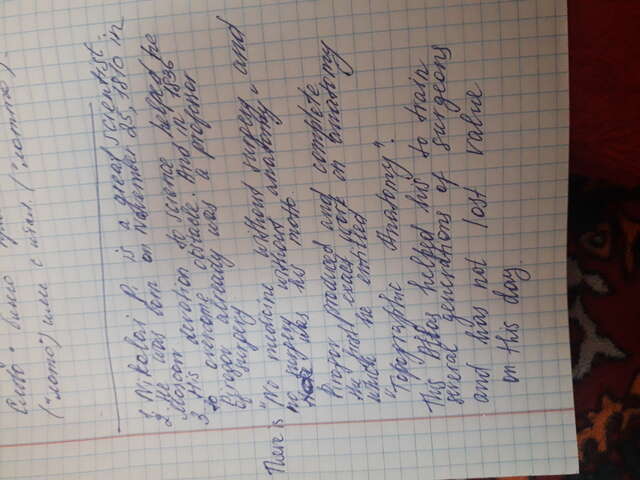 Слово "бинго
("лото") или с итал. ("лотто").
1. Nikolai Pi. is a great scientist.
2. He was born on November 25, 1810 in
Moscow
3. His devotion to science helped he
to overcome obstacle. And in 1836
Pirogov already was a professor
of surgery
There is "No medicine without surgery and
no surgery without anatomy"
was his motto.
Pirogov produced and complete
the first exact work on anatomy
which he entitled
"Topographic Anatomy".
This Atlas helped his to train
several generations of surgeons
and has not lost value
on this day.